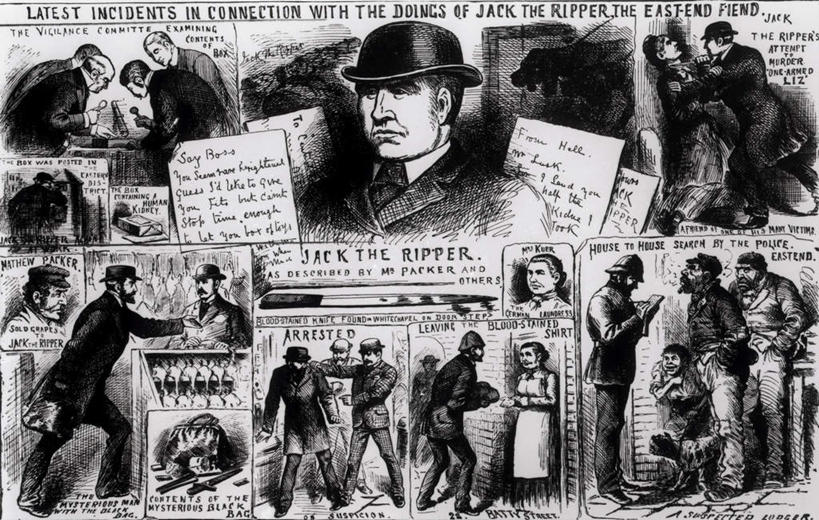 LATEST INCIDENTS IN CONNECTION WITH THE DOINGS OF JACK THE RIPPER, THE EAST-END FIEND.
THE VIGILANCE COMMITTE EXAMINING
CONTENTS
OF
BOX
Jack the Ripper
'JACK
THE RIPPER'S
ATTEMPT
TO
MURDER
'ONE-ARMED
LIZ'
A FRIEND OF ONE OF HIS MANY VICTIMS.
THE BOX WAS POSTED IN
THE
EASTERN
DIS-
TRICT.
THE BOX
CONTAINING A
HUMAN
KIDNEY.
Say Boss
You seem rare frightened
Guess I'd like to give
You fits but can't
Stop time enough
to let you box of toys
From Hell.
Mr Lusk.
I send you
half the
Kidne I
Took
Yours
JACK
RIPPER
JACK THE RIPPER.
AS DESCRIBED BY MR PACKER AND
OTHERS
MATHEW PACKER.
SOLD GRAPES
TO
JACK THE RIPPER
THE
MYSTERIOUS MAN
WITH THE BLACK
BAG.
CONTENTS OF THE
MYSTERIOUS BLACK
BAG
BLOOD-STAINED KNIFE FOUND IN WHITECHAPEL ON DOOR STEP
MRS KUER
THE
GERMAN LAUNDRESS
ARRESTED
ON SUSPICION.
LEAVING THE BLOOD-STAINED
SHIRT
22. BATTY STREET.
HOUSE TO HOUSE SEARCH BY THE POLICE.
EASTEND.
A SUSPECTED LODGER.